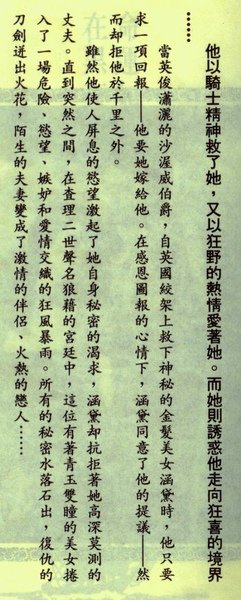 他以騎士精神救了她，又以狂野的熱情愛著她。而她則誘惑他走向狂喜的境界
……
當英俊瀟灑的沙渥威伯爵，自英國絞架上救下神秘的金髮美女涵黛時，他只要
求一項回報——他要她嫁給他。在感恩圖報的心情下，涵黛同意了他的提議——然
而却拒他於千里之外。
雖然他使人屏息的慾望激起了她自身秘密的渴求，涵黛却抗拒著她高深莫測的
丈夫。直到突然之間，在查理二世聲名狼藉的宮廷中，這位有著青玉雙瞳的美女捲
入了一場危險、慾望、嫉妒和愛情交織的狂風暴雨。所有的秘密水落石出，復仇的
刀劍迸出火花，陌生的夫妻變成了激情的伴侶、火熱的戀人……